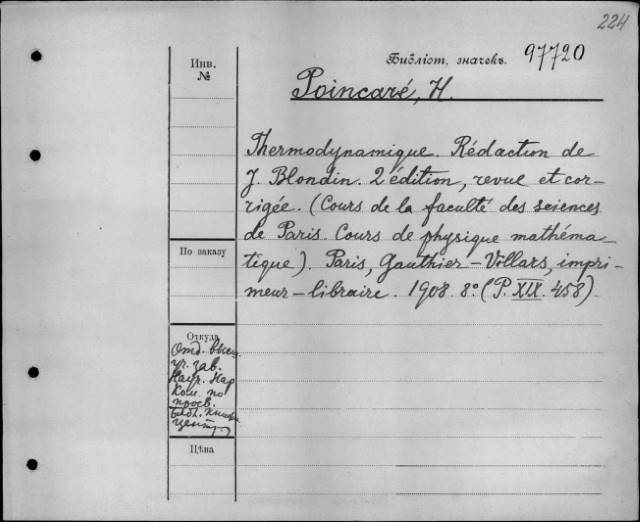 224
Инв.
№
Библіот. значекъ.
97720
Poincaré, H.
Thermodynamique. Rédaction de
J. Blondin. 2 édition, revue et cor-
rigée. (Cours de la faculté des sciences
de Paris. Cours de physique mathéma-
tique). Paris, Gauthier-Villars, impri-
meur-libraire. 1908. 8° (P. XIX. 458).
По заказу
Откуда
Отд. высш.
уч. зав.
Науч. Нар
Ком. по
просв.
Библ. книж.
центр.
Цѣна